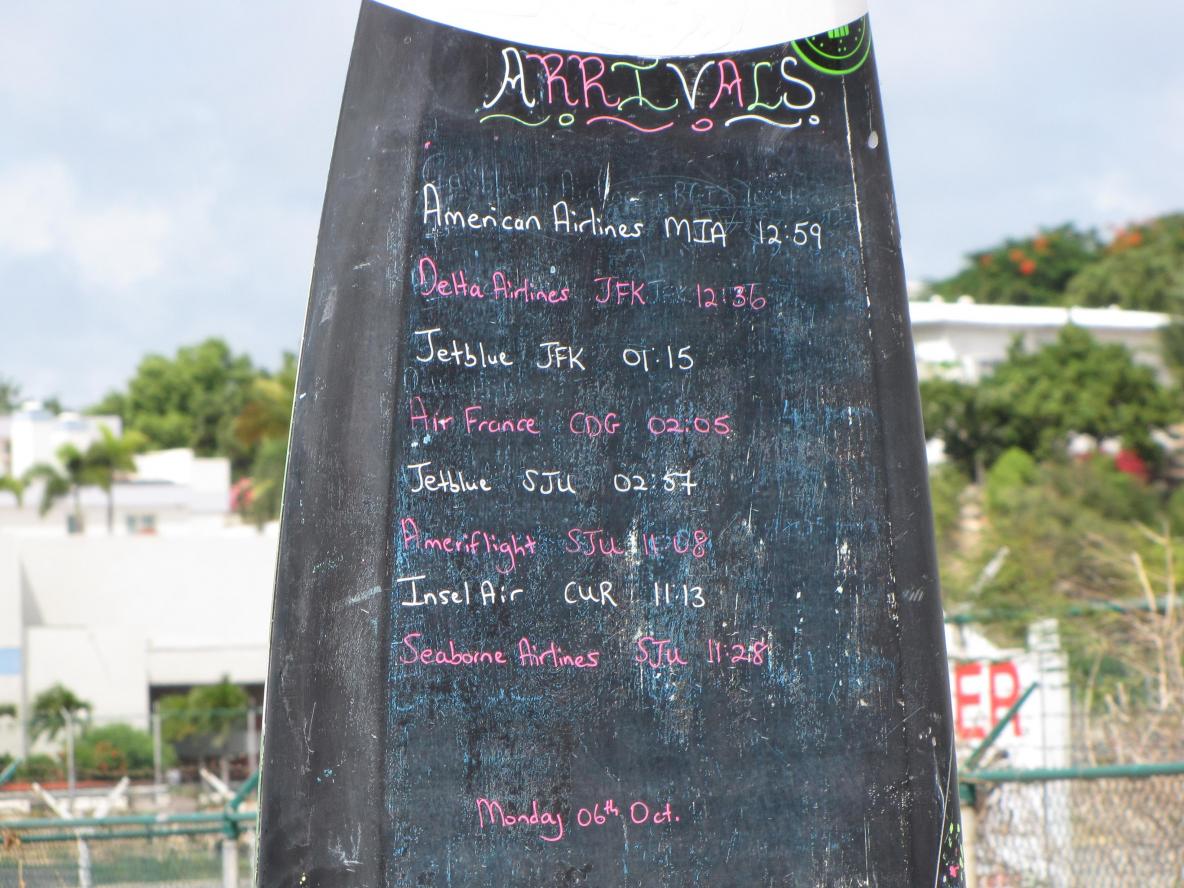 ARRIVALS
American Airlines MIA 12:59
Delta Airlines JFK 12:36
Jetblue JFK 01:15
Air France CDG 02:05
Jetblue SJU 02:57
Ameriflight SJU 11:08
Insel Air CUR 11:13
Seaborne Airlines SJU 11:28
Monday 06th Oct.
ER